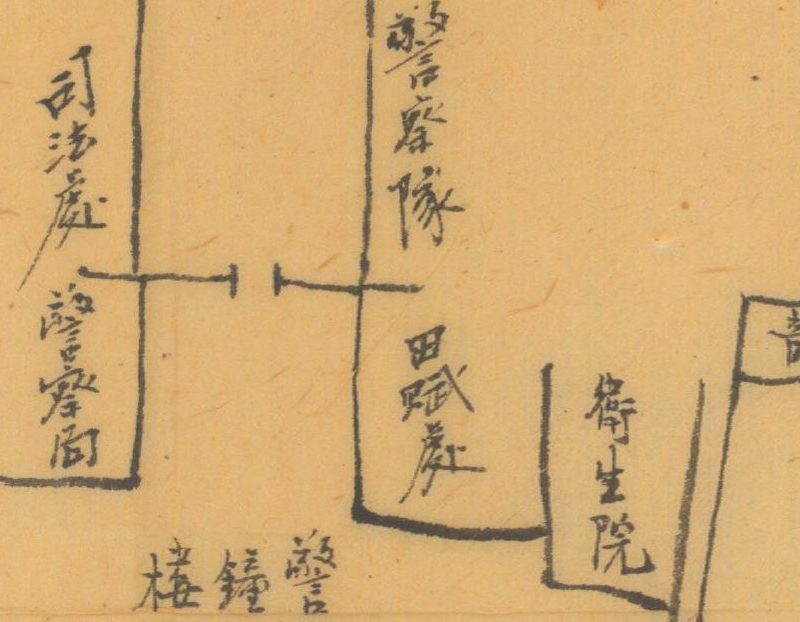 警察隊
司法處
警察局
田賦處
衛生院
警鐘樓